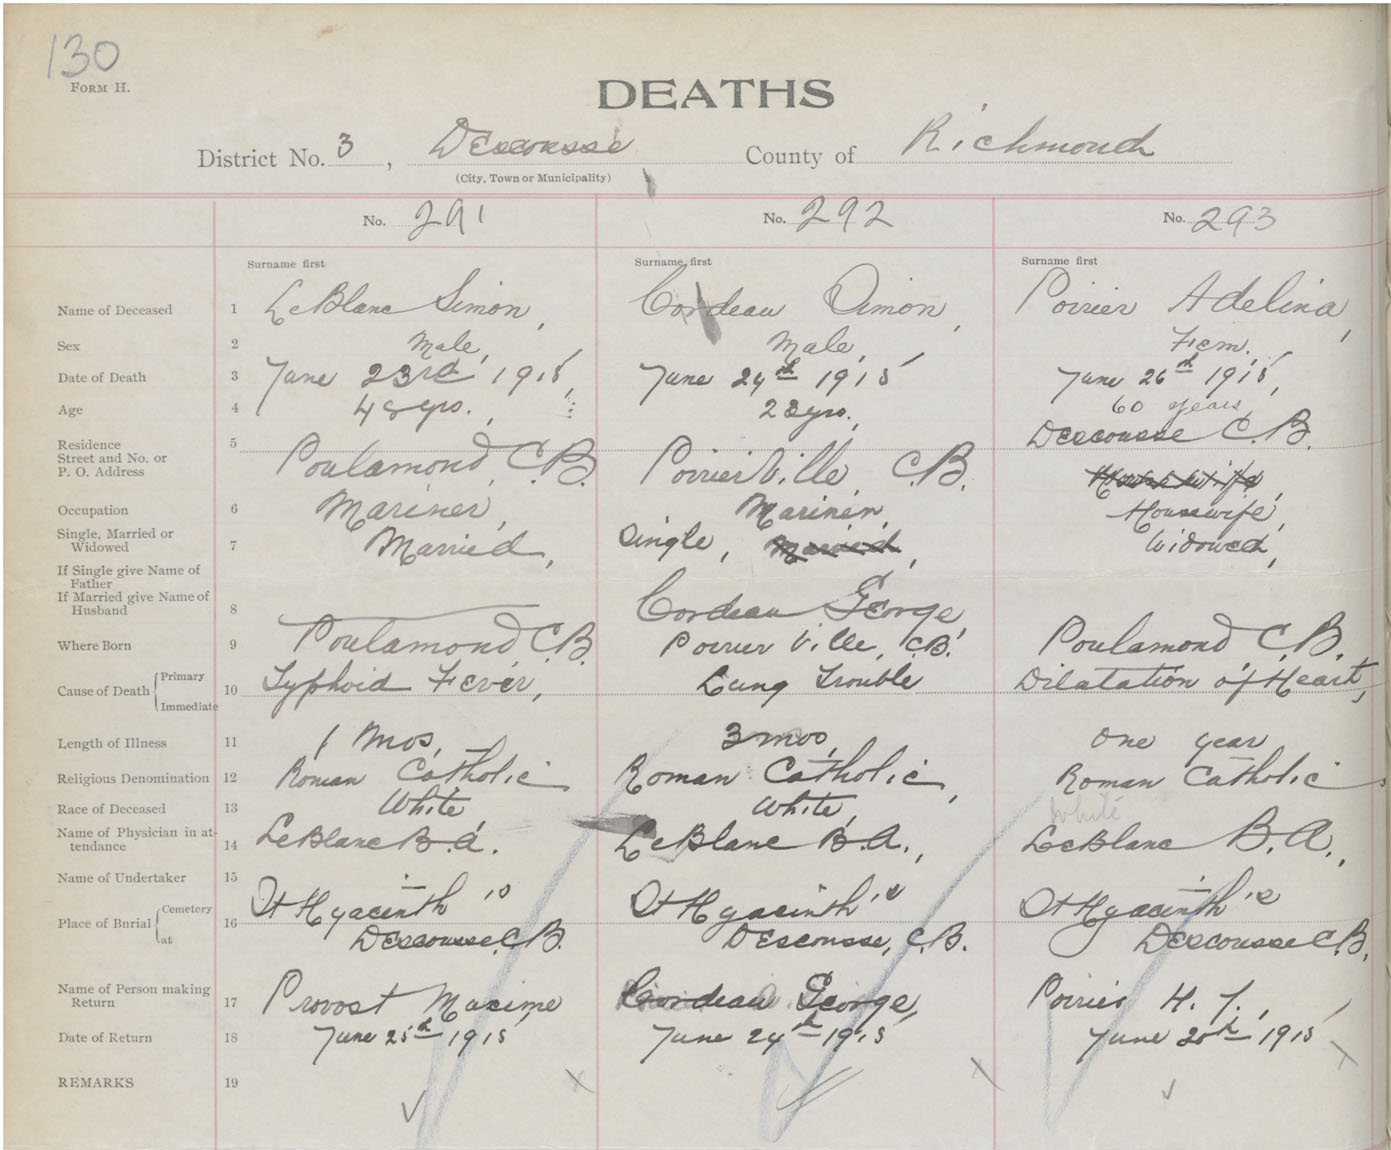 130
FORM H.
DEATHS
District No. 3, Descousse County of Richmond
(City, Town or Municipality)
No. 291 No. 292 No. 293
Surname first Surname first Surname first
Name of Deceased 1 LeBlanc Simon, Cordeau Simon, Poirier Adelina,
Sex 2 Male, Male, Fem.
Date of Death 3 June 23rd 1915, June 24th 1915 June 26th 1915,
Age 4 48 yrs., 23 yrs., 60 years
Residence 5 Descousse C.B.
Street and No. or
P. O. Address Poulamond, C.B. PoirierVille, C.B. Housewife,
Occupation 6 Mariner, Mariner, Housewife,
Single, Married or
Widowed 7 Married, Single, Married, Widowed,
If Single give Name of
Father
If Married give Name of
Husband 8 Cordeau George,
Where Born 9 Poulamond C.B. PoirierVille, C.B. Poulamond C.B.
Cause of Death { Primary
Immediate 10 Typhoid Fever, Lung Trouble Dilatation of Heart,
Length of Illness 11 1 Mos, 3 mos, one year
Religious Denomination 12 Roman Catholic Roman Catholic, Roman Catholic
Race of Deceased 13 White, White, White
Name of Physician in at-
tendance 14 LeBlanc B.A. LeBlanc B.A., LeBlanc B.A.,
Name of Undertaker 15
Place of Burial { Cemetery
at 16 St Hyacinth's St Hyacinth's St Hyacinth's
Descousse C.B. Descousse, C.B. Descousse C.B,
Name of Person making
Return 17 Provost Maxime Cordeau George, Poirier H. J.,
Date of Return 18 June 25th 1915 June 24th 1915 June 1915
REMARKS 19